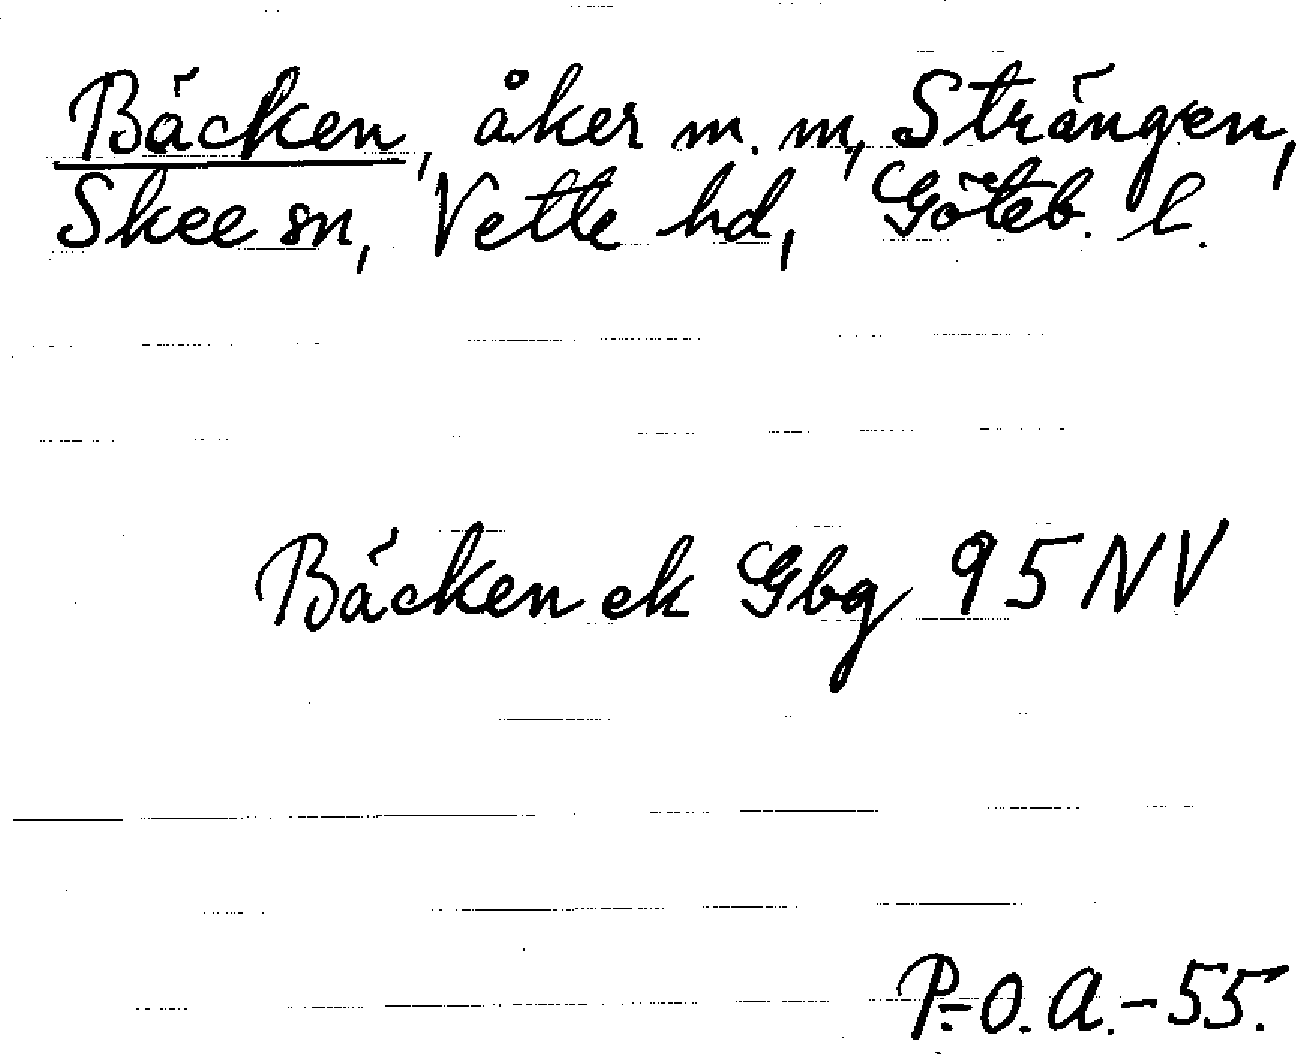 Bäcken, åker m. m, Strängen,
Skee sn, Vette hd, Göteb. l.
Bäcken ek Gbg 95 NV
P.-O. A. - 55.